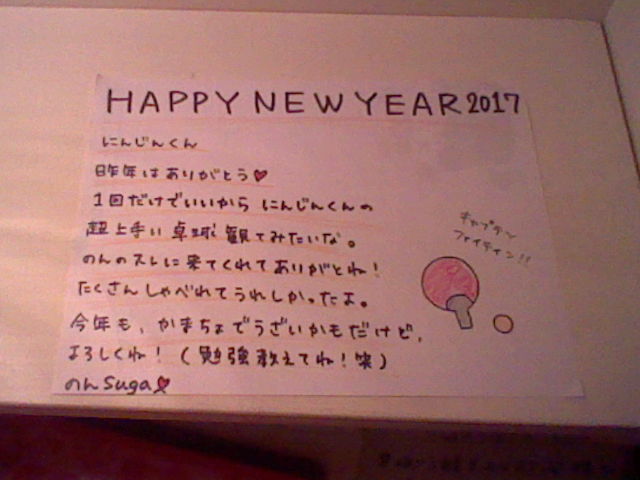 HAPPY NEW YEAR 2017
にんじんくん
昨年はありがとう♥
1回だけでいいから にんじんくんの
超上手い卓球観てみたいな。
のんのスレに来てくれてありがとね!
たくさんしゃべれてうれしかったよ。
今年も、かまちょでうざいかもだけど、
よろしくね!(勉強教えてね!笑)
のんSuga
キャプテン
ファイティン!!